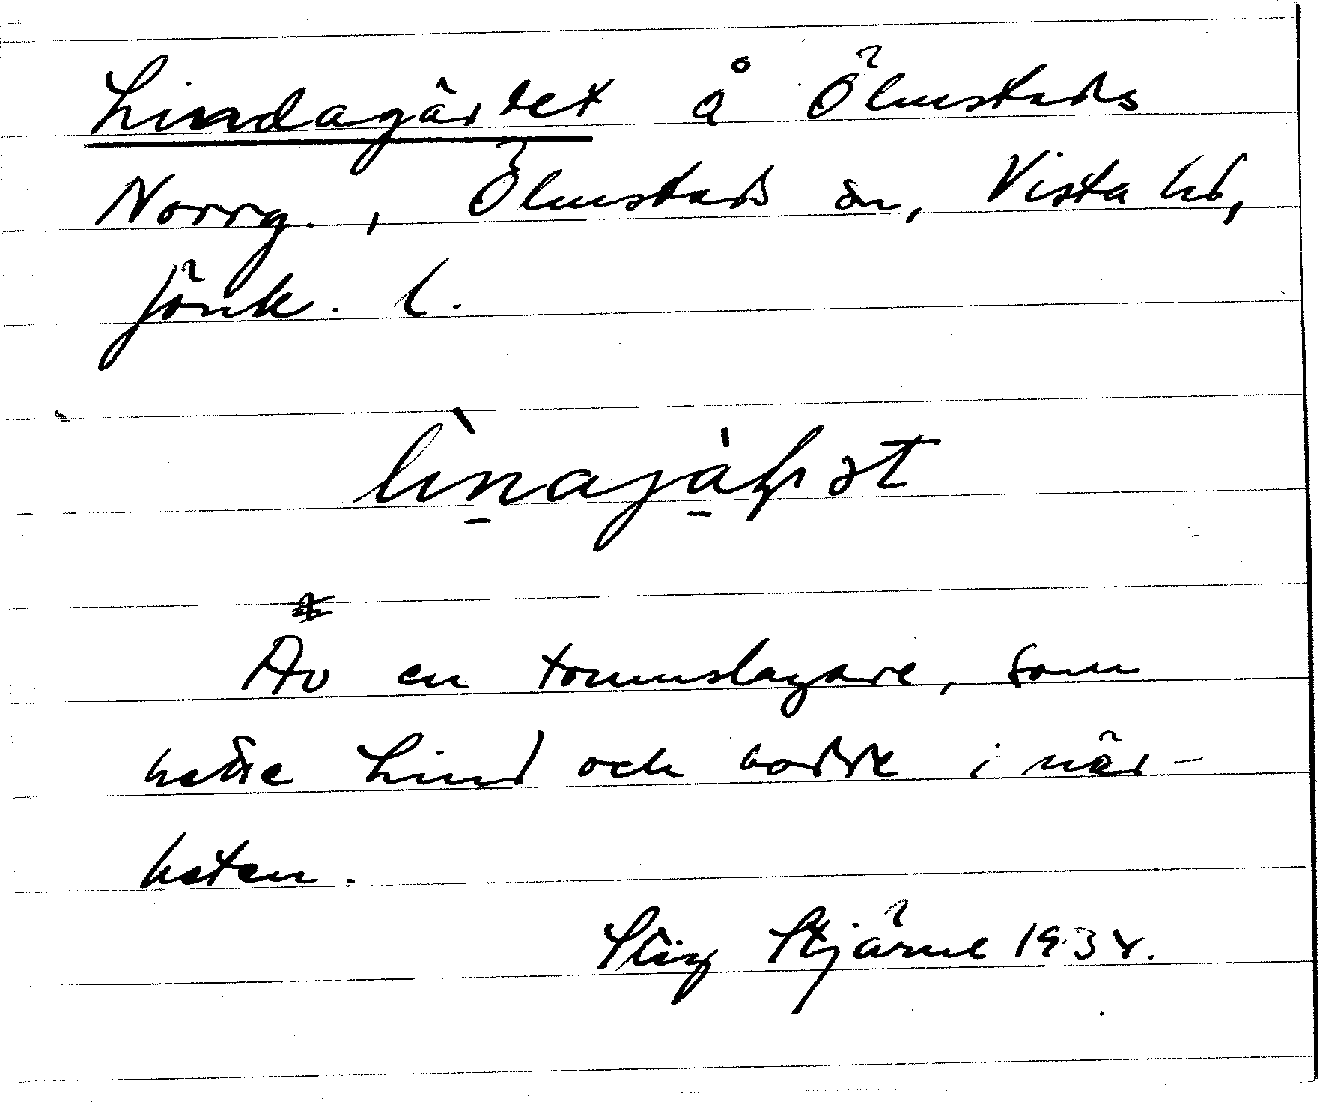 Lindagärdet å Ölmstads
Norrg., Ölmstads sn, Vista hd,
Jönk. l.
Av en trumslagare, som
hette Lind och bodde i när-
heten.
Stig Stjärne 1934.